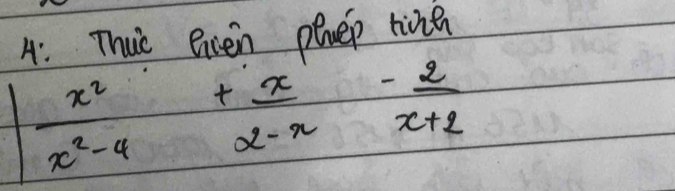 4: Thực hiện phép tính
x²/(x²-4) + x/(2-x) - 2/(x+2)